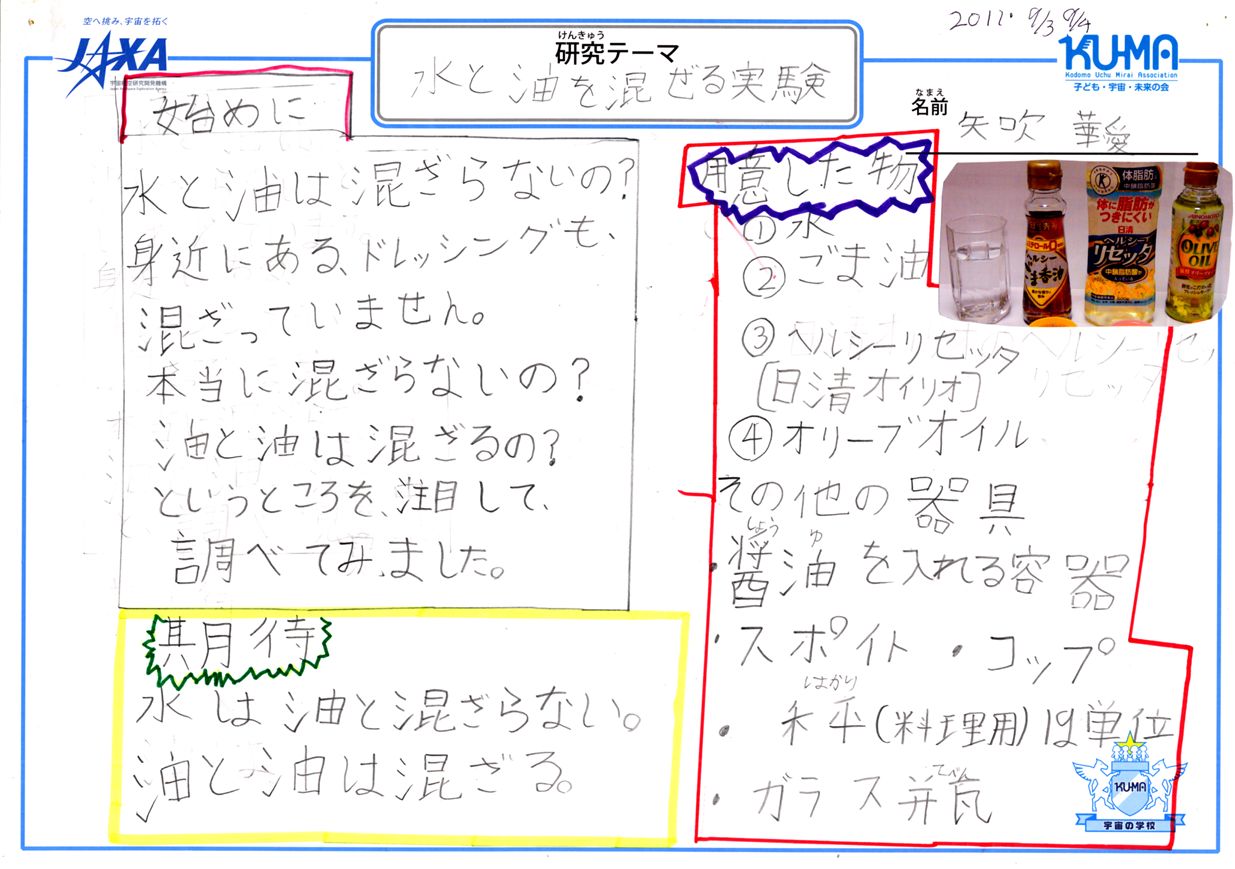 空へ挑み、宇宙を拓く
JAXA
宇宙航空研究開発機構
けんきゅう
研究テーマ
水と油を混ぜる実験
2011. 9/3 9/4
KU-MA
Kodomo Uchu Mirai Association
子ども・宇宙・未来の会
なまえ
名前
矢吹 華愛
始めに
水と油は混ざらないの?
身近にある、ドレッシングも、
混ざっていません。
本当に混ざらないの?
油と油は混ざるの?
というところを、注目して、
調べてみました。
期待
水は油と混ざらない。
油と油は混ざる。
用意した物
①水
②ごま油
③ヘルシーリセッタ
[日清オイリオ]
④オリーブオイル
その他の器具
しょう ゆ
・醤油を入れる容器
・スポイト ・コップ
はかり
・秤(料理用)1g単位
・ガラス瓶
体脂肪
中鎖脂肪酸
体に脂肪が
つきにくい
日清
ヘルシー
リセッタ
ヘルシー
ごま香油
OLIVE
OIL
KU-MA
宇宙の学校